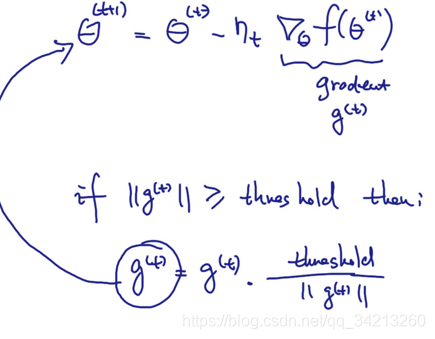 θ^(t+1) = θ^(t) - η_t ∇_θ f(θ^(t))
gradient
g^(t)
if ||g^(t)|| ≥ threshold then:
g^(t) = g^(t) · threshold / ||g^(t)||
https://blog.csdn.net/qq_34213260